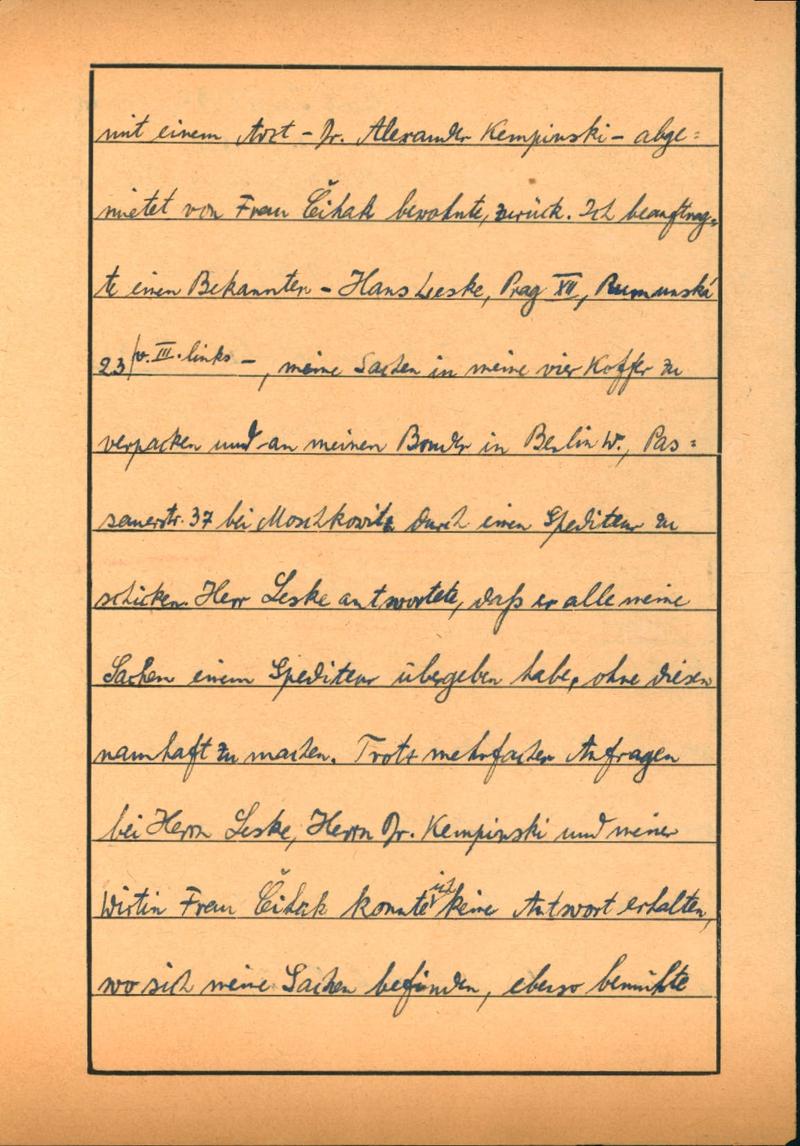 mit einem Arzt - Dr. Alexander Kempinski - abge=
mietet von Frau Čihak bewohnte, zurück. Ich beauftrag=
te einen Bekannten - Hans Leske, Prag XII, Rumunská
23/v. III. links -, meine Sachen in meine vier Koffer zu
verpacken und an meinen Bruder in Berlin W., Pas=
sauerstr. 37 bei Moschkowitz durch einen Spediteur zu
schicken. Herr Leske antwortete, daß er alle meine
Sachen einem Spediteur übergeben habe, ohne diesen
namhaft zu machen. Trotz mehrfacher Anfragen
bei Herrn Leske, Herrn Dr. Kempinski und meiner
Wirtin Frau Čihak konnte ich keine Antwort erhalten,
wo sich meine Sachen befinden, ebenso bemühte